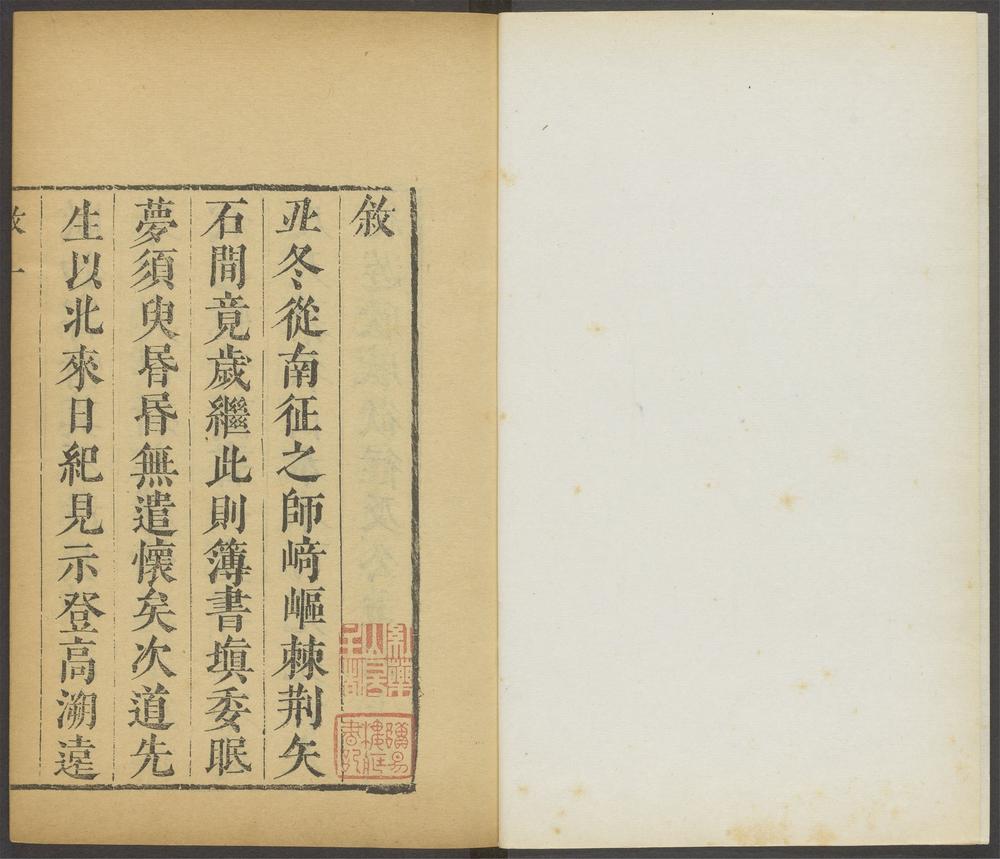 敘
丠冬從南征之師崎嶇棘荆矢
石間竟歲繼此則簿書塡委眠
夢須臾昬昬無遣懷矣次道先
生以北來日紀見示登高溯遠
敘一